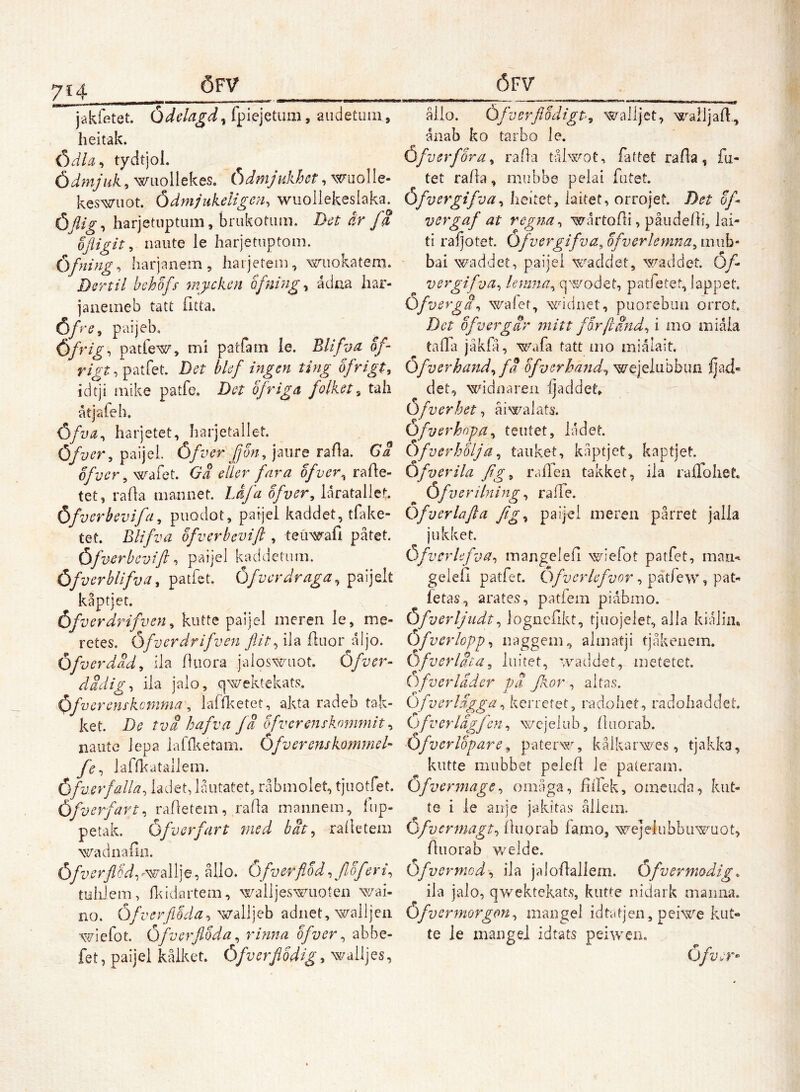 714 ÖFV
jakſetet. Ödelagd, ſpiejetum, audetum,
heitak.
Ödla, tydtjol.
Ödmjuk, wuollekes. Ödmjukhet, wuolle-
keswuot. Ödmjukeligen, wuollekeslaka.
Öflig, harjetuptum, brukotum. Det år ſå
öfligit, naute le harjetuptom.
Öfning, harjanem, harjetem, wuokatem.
Dertil behöfs mycken öfning, ådna har-
janemeb tatt ſitta.
Öfre, paijeb.
Öfrig, patſew, mi patſam le. Blifva öf-
rigt, patſet. Det blef ingen ting öfrigt,
idtji mike patſe. Det öfriga folket, tah
åtjaſeh.
Öfva, harjetet, harjetallet.
Öfver, paijel. Öfver ſjön, jaure raſta. Gå
öfver, waſet. Gå eller fara öfver, raſte-
tet, raſta mannet. Låſa öfver, låratallet.
Öfverbeviſa, puodot, paijel kaddet, tſake-
tet. Blifva öfverbeviſt, teuwaſi påtet.
Öfverbeviſt, paijel kaddetum.
Öfverblifva, patſet. Öfverdraga, paijelt
kåptjet.
Öfverdrifven, kutte paijel meren le, me-
retes. Öfverdrifven flit, ila ſtuor åljo.
Öfverdåd, ila ſtuora jaloswuot. Öfver-
dådig, ila jalo, qwektekats.
Öfverenskomma, laſſketet, akta radeb tak-
ket. De två hafva ſå öfverenskommit,
naute lepa laſſketam. Öfverenskommel-
ſe, laſſkatallem.
Öfverfalla, ladet, låutatet, råbmolet, tjuotſet.
Öfverfart, raſtetem, raſta mannem, ſup-
petak. Öfverfart med båt, raſtetem
wadnaſin.
Öfverflöd, wallje, ållo. Öfverflöd, flöſeri,
tuhlem, ſkidartem, walljeswuoten wai-
no. Öfverflöda, walljeb adnet, walljen
wieſot. Öfverflöda, rinna öfver, abbe-
ſet, paijel kålket. Öfverflödig, walljes,
ÖFV
ållo. Öfverflödigt, walljet, walljaſt,
ånab ko tarbo le.
Öfverföra, raſta tålwot, ſattet raſta, ſu-
tet raſta, mubbe pelai ſutet.
Öfvergifva, heitet, laitet, orrojet. Det öf-
vergaf at regna, wårtoſti, påudeſti, lai-
ti raſjotet. Öfvergifva, öfverlemna, mub-
bai waddet, paijel waddet, waddet. Öf-
vergifva, lemna, qwodet, patſetet, lappet.
Öfvergå, waſet, widnet, puorebun orrot.
Det öfvergår mitt förſtånd, i mo miåla
taſſa jåkſa, waſa tatt mo miålait.
Öfverhand, få öfverhand, wejelubbun ſjad-
det, widnaren ſjaddet.
Öfverhet, åiwalats.
Öfverhopa, teutet, lådet.
Öfverhölja, tauket, kåptjet, kaptjet.
Öfverila ſig, raſſen takket, ila raſſohet.
Öfverilning, raſſe.
Öfverlaſta ſig, paijel meren pårret jalla
jukket.
Öfverlefva, mangeleſi wieſot patſet, man-
geleſi patſet. Öfverlefvor, patſew, pat-
ſetas, arates, patſem piåbmo.
Öfverljudt, logneſikt, tjuojelet, alla kiålin.
Öfverlopp, naggem, almatji tjåkenem.
Öfverlåta, luitet, waddet, metetet.
Öfverläder på ſkor, altas.
Öfverlägga, kerretet, radohet, radohaddet.
Öfverlägſen, wejelub, ſtuorab.
Öfverlöpare, paterw, kålkarwes, tjakka,
kutte mubbet peleſt le pateram.
Öfvermage, omåga, ſiſſek, omeuda, kut-
te i le anje jakitas ållem.
Öfvermagt, ſtuorab famo, wejelubbuwuot,
ſtuorab welde.
Öfvermod, ila jaloſtallem. Öfvermodig,
ila jalo, qwektekats, kutte nidark manna.
Öfvermorgon, mangel idtatjen, peiwe kut-
te le mangel idtats peiwen.
Öfver-